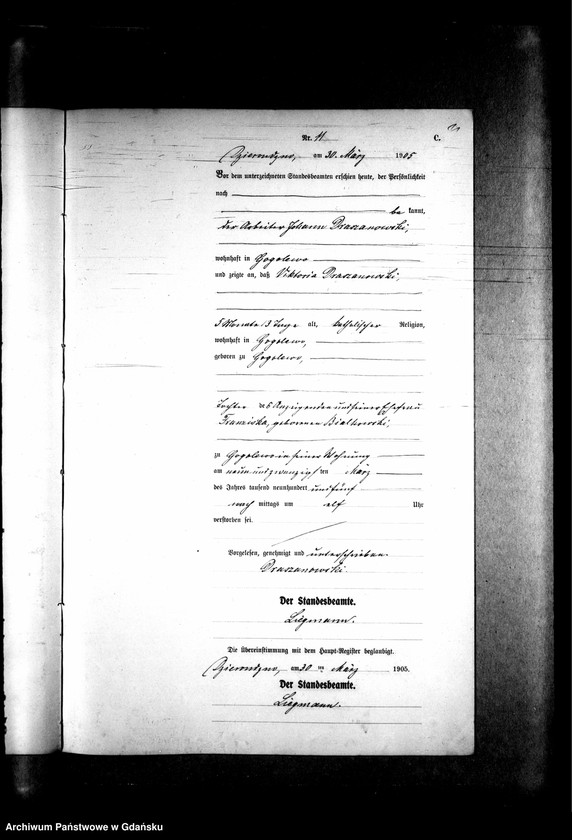 Nr. 11
C.
am 30. März 1905
Vor dem unterzeichneten Standesbeamten erschien heute, der Persönlichkeit
nach
be kannt,
der Arbeiter Johann Draszanowski,
wohnhaft in Gogolewo
und zeigte an, daß Viktoria Draszanowski,
5 Monate 13 Tage alt, katholischer Religion,
wohnhaft in Gogolewo,
geboren zu Gogolewo,
Tochter des Anzeigenden und seiner Ehefrau
Franziska, geborenen Bialkowski,
zu Gogolewo in seiner Wohnung
am neun und zwanzigsten März
des Jahres tausend neunhundert und fünf
nach mittags um elf Uhr
verstorben sei.
Vorgelesen, genehmigt und unterschrieben.
Draszanowski.
Der Standesbeamte.
Liegmann.
Die Übereinstimmung mit dem Haupt-Register beglaubigt.
am 30 ten März 1905.
Der Standesbeamte.
Liegmann.
Archiwum Państwowe w Gdańsku